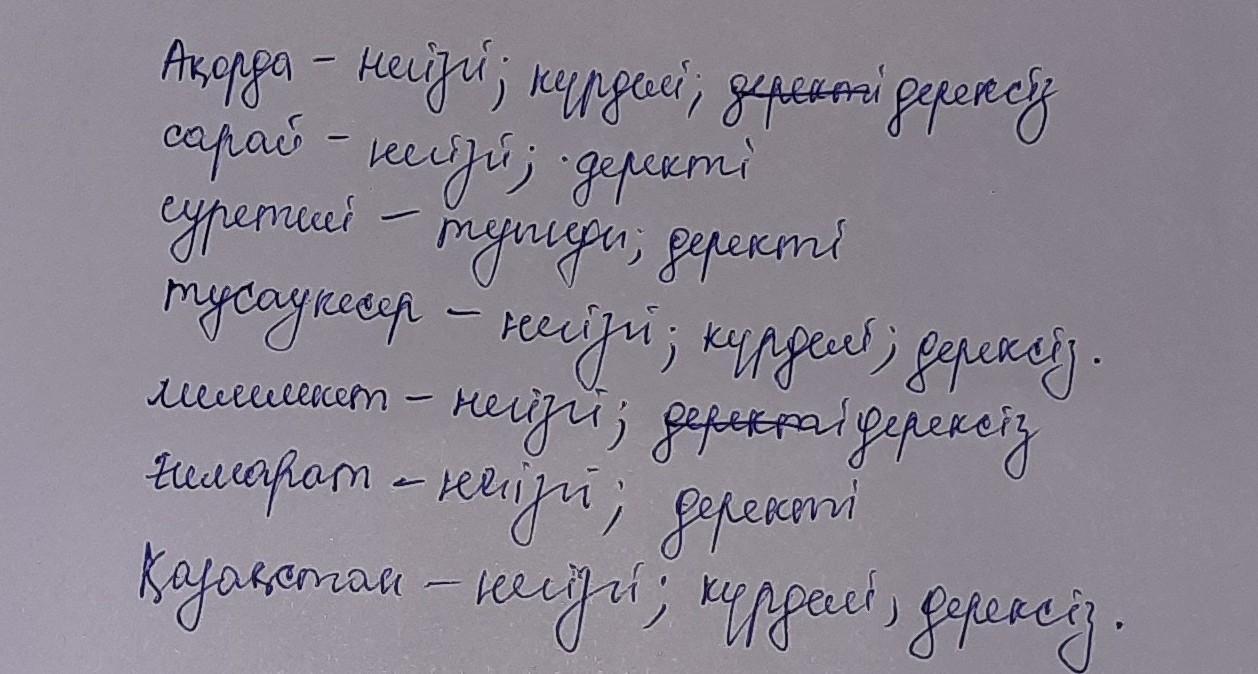 Ақорда – негізгі; күрделі; деректі дерексіз
сарай – негізгі; деректі
суретші – туынды; деректі
тұсаукесер – негізгі; күрделі; дерексіз.
мемлекет – негізгі; деректі дерексіз
ғимарат – негізгі; деректі
Қазақстан – негізгі; күрделі, дерексіз.